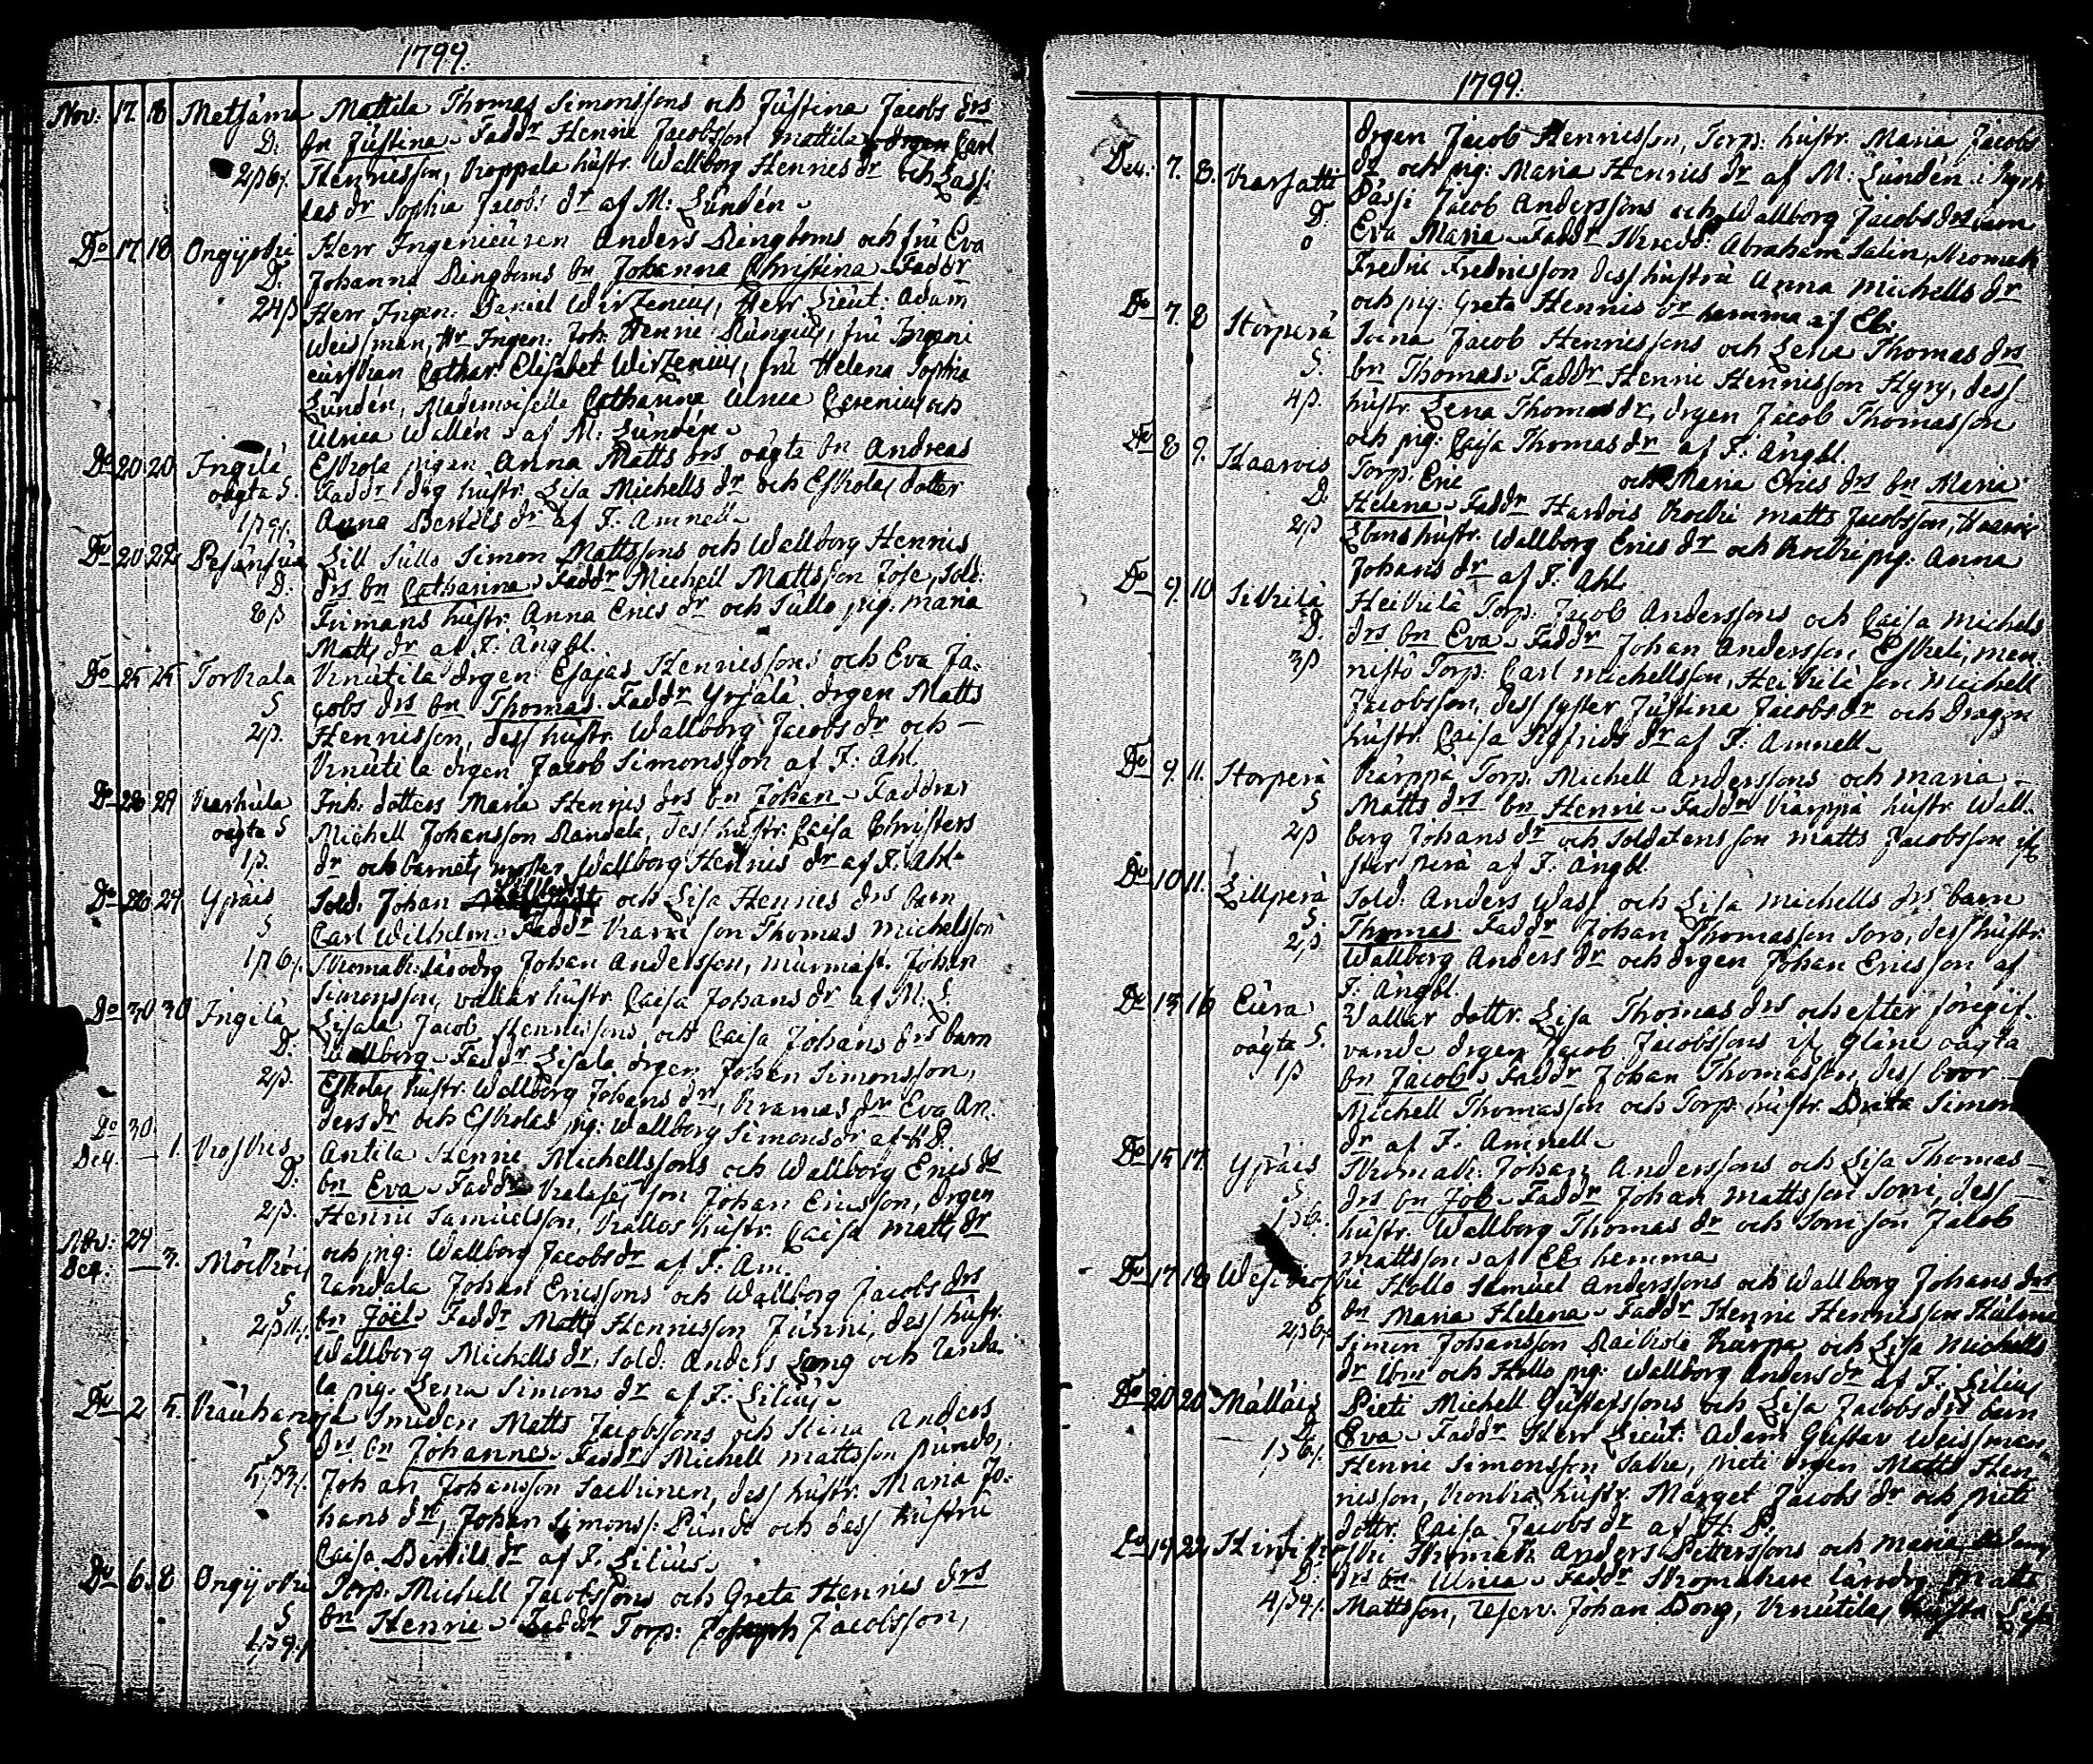 1799.
Nov: 17. 18 Metsäma Mattila Thomas Simonssons och Justina Jacobs drs
D. bn Justina. Fadd:r Henric Jacobsson Mattila Carl
2ß6. Henricsson, Knappala hustr. Wallborg Henrics dr och Lassi
las dr Sophia Jacobs dr af M: Lundén
Do 17 18 Ongijoki Herr Ingenieuren Anders Ringboms och fru Eva
D. Johanna Ringboms bn Johanna Christina. Faddr
24ß Herr Ingen: Daniel Wirzenius, Herr Lieut: Adam
Weissman, Hr Ingen: Joh: Henric Rungius, fru Ingeni
eurskan Cathar: Elisabet Wirzenius, fru Helena Sophia
Lundén, Mademoiselle Catharina Ulrica Cerenius och
Ulrica Wallén af M: Lundén
Do 20 20 Ingilä Eskola pigan Anna Matts drs oägta bn Andreas
oägta S. Faddr drg hustr. Lisa Michells dr och Eskolas dotter
Anna Bertils dr af F. Amnell
Do 20 22 Pesänsuo Lill Sullo Simon Mattssons och Wallborg Henrics
D. drs bn Catharina. Faddr Michell Mattsson Jose, Sold:
8ß Firmans hustr. Anna Erics dr och Sullo pig: Maria
Matts dr af F. Ångbl.
Do 25 25 Torkala Knutila drgen Esajas Henricssons och Eva Ja:
S cobs drs bn Thomas. Faddr Yrjälä drgen Matts
2ß. Henricsson, dess hustr. Wallborg Jacobs dr och
Knutila drgen Jacob Simonsson af F. Ahl.
Do 28 29 Karhula Inh: dotters Maria Henrics drs bn Johan. Faddrar
oägta S Michell Johansson Randala, dess hustr. Caisa Christers
1ß. dr och barnets moster Wallborg Henrics dr af F. Ahl.
Do 28 29 Ypäis Sold: Johan och Lisa Henrics drs barn
S Carl Wilhelm. Faddr Karri son Thomas Michelsson
1ß6. Skomak: lärodrg Johan Andersson, murmäst. Johan
Simonsson, vallar hustr. Caisa Johans dr af M: L.
Do 30 30 Ingilä Lisala Jacob Henricssons och Caisa Johans drs barn
D. Wallborg. Faddr Lisala drgen Johan Simonsson,
2ß. Eskolas hustr. Wallborg Johans dr, Kramas dr Eva An:
ders dr och Eskolas pig: Wallborg Simons dr af H P.
Do 30
Dec. — 1. Koskis Antila Henric Michellssons och Wallborg Erics dr
D. bn Eva. Faddr son Johan Ericsson, drgen
2ß. Henric Samuelsson, Kallos hustr. Caisa Matts dr
och pig: Wallborg Jacobs dr af F. Am.
Nov: 29
Dec. — 3. Mörköis Randala Johan Ericssons och Wallborg Jacobs drs
S bn Joël. Faddr Matts Henricsson Junni, dess hustr.
2ß Wallborg Michells dr, Sold: Anders Lång och Randa
la pig. Lena Simons dr af F. Lilius
Do 2 5. Rauhan Smeden Matts Jacobssons och Stina Anders
S drs bn Johannes. Faddr Michell Mattsson Pundo,
5ß3. Johan Johansson Saekinen, dess hustr. Maria Jo:
hans dr, Johan Simonss: Pundo och dess hustru
Caisa Bertils dr af F. Lilius
Do 6. 8 Ongijoki Torp: Michell Jacobssons och Greta Henrics drs
S bn Henric. Faddr Torp: Joseph Jacobsson,
1799.
drgen Jacob Henricsson, Torp: hustr. Maria Jacobs
dr och pig: Maria Henrics dr af M: Lundén
Dec: 7. 8. Karsatti Passi Jacob Anderssons och Wallborg Jacobs drs barn
D. Eva Maria. Faddr Skrädd: Abraham Salin, Kromak
Fredric Fredricsson dess hustru Anna Michells dr
och pig: Greta Henrics dr hemma af Eb:
Do 7. 8 Storperä Jacob Henricssons och Lena Thomas drs
S. bn Thomas. Faddr Henric Henricsson Hyry, dess
4ß. hustr. Lena Thomas dr, drgen Jacob Thomasson
och pig: Caisa Thomas dr af F. Ångbl.
Do 8 9. Haarois Torp: Eric och Maria Erics drs bn Maria
D. Helena. Faddr Matts Jacobsson, Haarois
2ß hustr. Wallborg Erics dr och pig: Anna
Johans dr af F. Ahl.
Do 9. 10 Sikilä Heikilä Torp: Jacob Anderssons och Caisa Michels
D. drs bn Eva. Faddr Johan Andersson Eskeli, Man
3ß nistö Torp: Carl Michellsson, Heikilä son Michell
Jacobsson, dess syster Justina Jacobs dr och Dragon
hustr. Caisa Sigfrids dr af F. Amnell
Do 9. 11. Storperä Kärppä Torp: Michell Anderssons och Maria
S Matts drs bn Henric. Faddr Kärppä hustr. Wall:
2ß borg Johans dr och Soldatens son Matts Jacobsson
Storperä af F. Ångbl.
Do 10 11. Lillperä Sold: Anders Wass och Lisa Michells drs barn
S. Thomas. Faddr Johan Thomasson Sorv, dess hustr.
2ß Wallborg Anders dr och drgen Johan Ericsson af
F. Ångbl.
Do 15 16 Eura Vallar dottr. Lisa Thomas drs och efter föregif:
oägta S. vande drgen Jacob Jacobssons oägta
1ß bn Jacob. Faddr Johan Thomasson, dess bror
Michell Thomasson och Torp: hustr. Brita Simons
dr af F. Amnell
Do 15 17. Ypäis Skomak: Johan Anderssons och Lisa Thomas
S drs bn Job. Faddr Johan Mattsson Sorri, dess
1ß6. hustr. Wallborg Thomas dr och Sorri son Jacob
Mattsson af EE hemma
Do 17 18 Hollo Samuel Anderssons och Wallborg Johans drs
bn Maria Helena. Faddr Henric Henricsson
2ß6. Simon Johansson Raikola Kärpä och Lisa Michells
dr och Hollo pig: Wallborg Anders dr af F. Lilius
Do 20 20 Mälläis Pieti Michell Gustafssons och Lisa Jacobs drs barn
D. Eva. Faddr Herr Lieut: Adam Gustav Weissman,
1ß6. Henric Simonsson Sakri, Pieti drgen Matts Hen
ricsson, Kontra hustr. Marget Jacobs dr och Pieti
dottr. Caisa Jacobs dr af H. P.
Do 19 22 Hirsi Skomak: Anders Petterssons och Maria
D. drs bn Ulrica. Faddr Skomakare lärodrg Matts
4ß9. Mattsson, Reserv: Johan Bong, Knutilas hustru Lisa